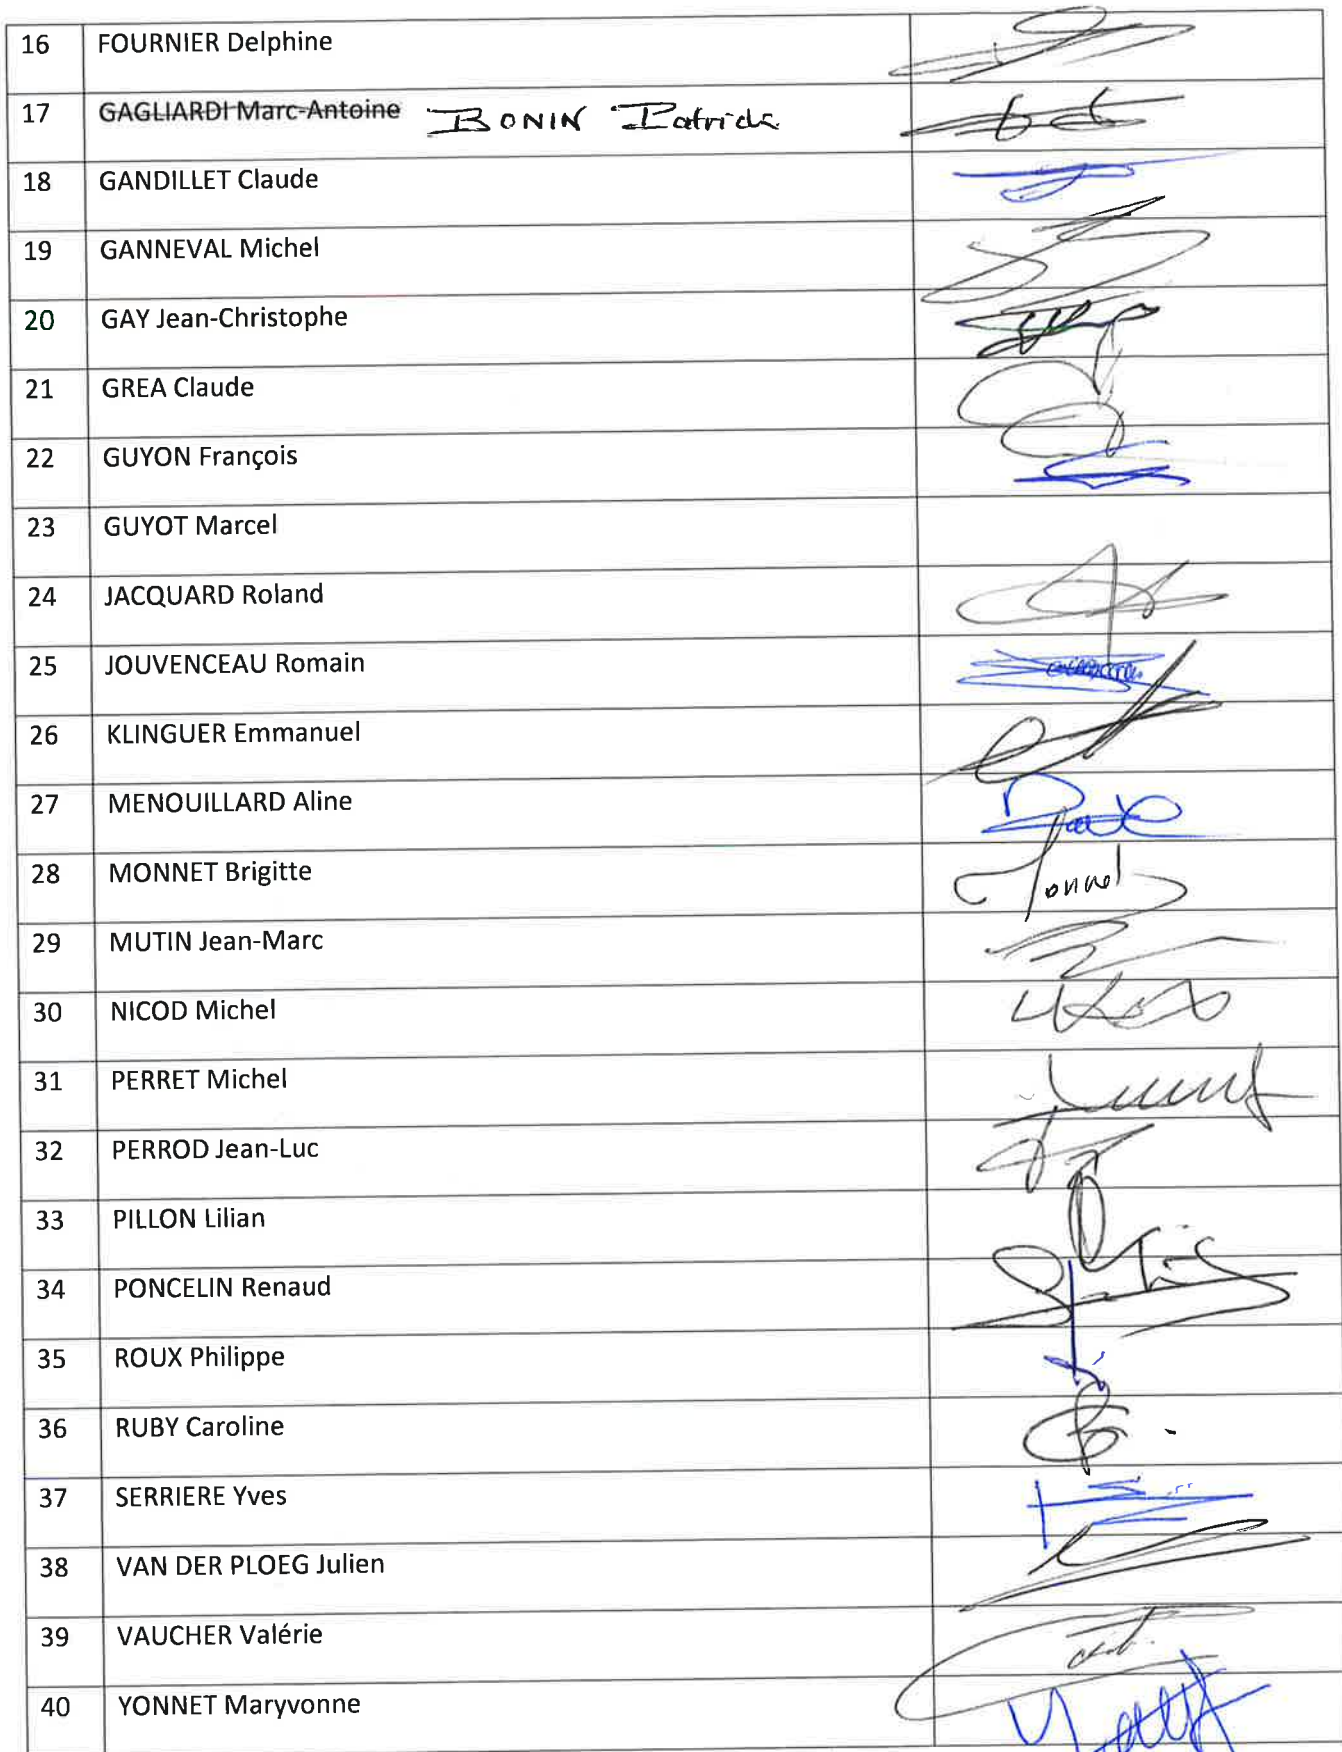 16 FOURNIER Delphine
17 GAGLIARDI Marc-Antoine BONIN Patrick
18 GANDILLET Claude
19 GANNEVAL Michel
20 GAY Jean-Christophe
21 GREA Claude
22 GUYON François
23 GUYOT Marcel
24 JACQUARD Roland
25 JOUVENCEAU Romain
26 KLINGUER Emmanuel
27 MENOUILLARD Aline
28 MONNET Brigitte
29 MUTIN Jean-Marc
30 NICOD Michel
31 PERRET Michel
32 PERROD Jean-Luc
33 PILLON Lilian
34 PONCELIN Renaud
35 ROUX Philippe
36 RUBY Caroline
37 SERRIERE Yves
38 VAN DER PLOEG Julien
39 VAUCHER Valérie
40 YONNET Maryvonne